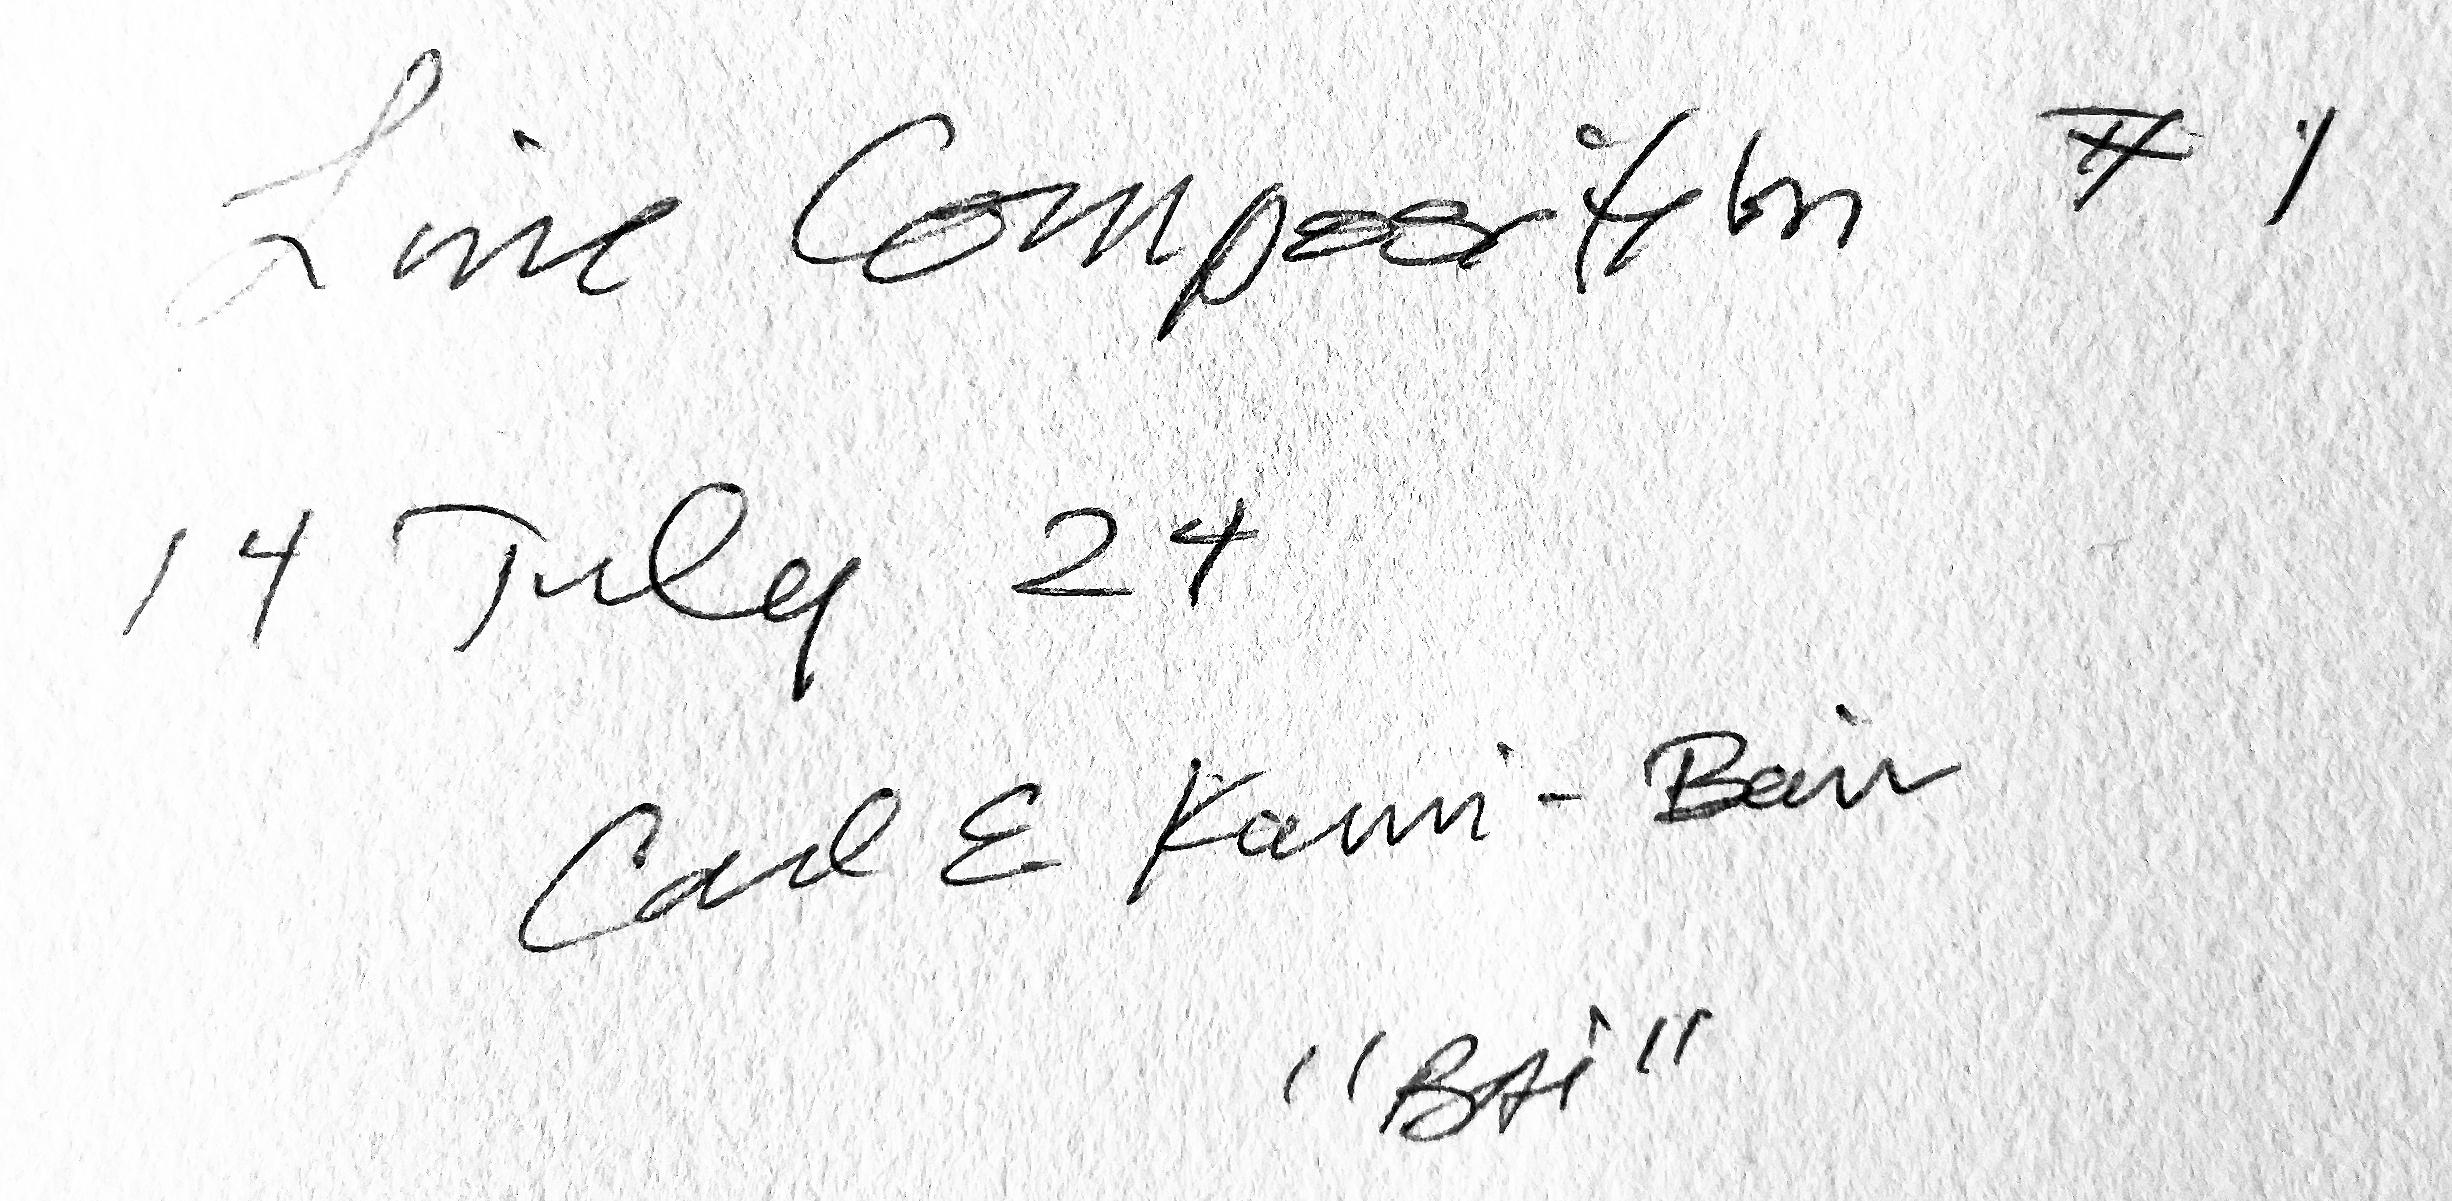 Line Composition #1
14 July 24
Carl E Kami-Bair
"BAi"